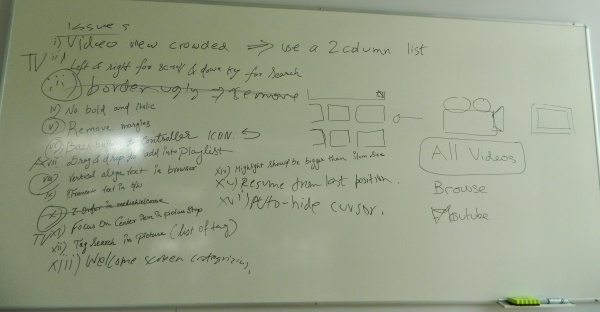 Issues
i) Video view crowded ⇒ use a 2 column list
TV ii) Left & right for scroll & down key for search
iii) border ugly → remove
iv) No bold and italic
v) Remove margins
vi) controller ICON
vii) Drag & drop to add into playlist
viii) Vertical align text in browser
ix) text in
x) Z order in
TV xi) Focus on Center Item in picture
xii) Tag Search in picture (list of tag)
xiii) Welcome screen
xiv) Highlight should be bigger than item size
xv) Resume from last position.
xvi) Auto-hide cursor.
All Videos
Browse
Youtube